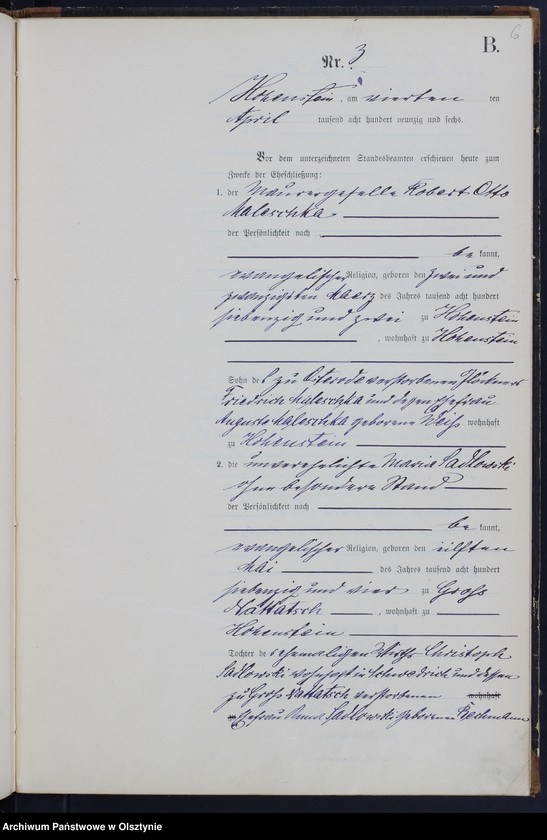 6
B.
Nr. 3
Hohenstein, am vierten ten
April tausend acht hundert neunzig und sechs.
Vor dem unterzeichneten Standesbeamten erschienen heute zum
Zwecke der Eheschließung:
1. der Maurergeselle Robert Otto
Maleschka
der Persönlichkeit nach
be kannt,
evangelischer Religion, geboren den zwei und
zwanzigsten Maerz des Jahres tausend acht hundert
siebenzig und zwei zu Hohenstein
, wohnhaft zu Hohenstein
Sohn des zu Osterode verstorbenen
Friedrich Maleschka und dessen Ehefrau
Auguste Maleschka geborene Weiß wohnhaft
zu Hohenstein
2. die unverehelichte Maria Sadlowski
ohne besonderen Stand
der Persönlichkeit nach
be kannt,
evangelischer Religion, geboren den eilften
Mai des Jahres tausend acht hundert
siebenzig und vier zu Groß
Nattatsch, wohnhaft zu
Hohenstein
Tochter des ehemaligen Wirths Christoph
Sadlowski wohnhaft in Schwedrich und dessen
zu Groß Nattatsch verstorbenen wohnhaft
zu Ehefrau Anna Sadlowski geborenen
Archiwum Państwowe w Olsztynie